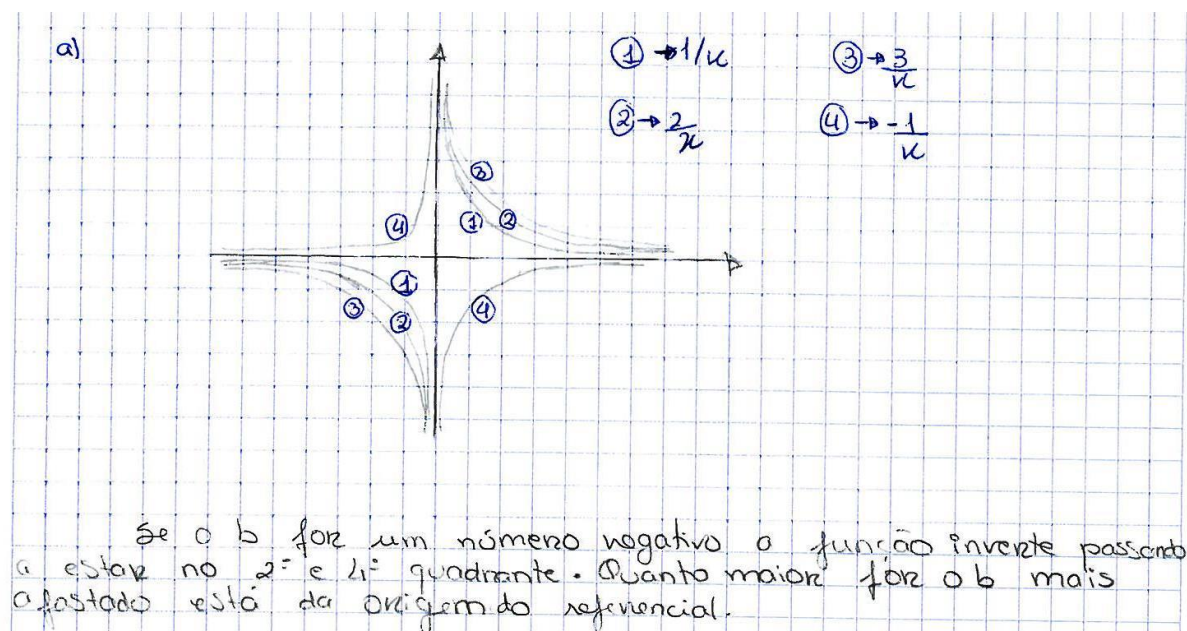 a)
① → 1/x
③ → 3/x
② → 2/x
④ → -1/x
③
④ ① ②
①
③ ② ④
Se o b for um número negativo a função inverte passando
a estar no 2º e 4º quadrante. Quanto maior for o b mais
afastado está da origem do referencial.